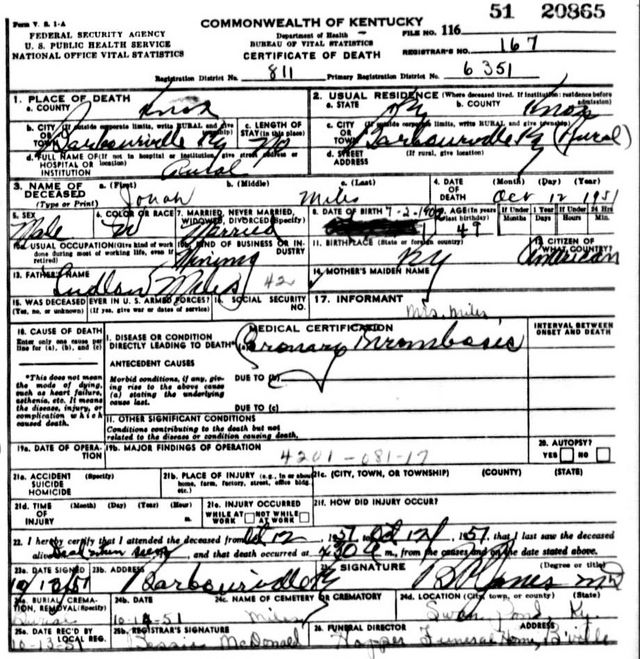 Form V. S. 1-A
51 20865
COMMONWEALTH OF KENTUCKY
FEDERAL SECURITY AGENCY
U. S. PUBLIC HEALTH SERVICE
NATIONAL OFFICE VITAL STATISTICS
Department of Health
BUREAU OF VITAL STATISTICS
CERTIFICATE OF DEATH
FILE NO. 116
REGISTRAR'S NO. 167
Registration District No. 811 Primary Registration District No. 6351
1. PLACE OF DEATH
a. COUNTY Knox
2. USUAL RESIDENCE (Where deceased lived. If institution: residence before admission)
a. STATE Ky b. COUNTY Knox
b. CITY (If outside corporate limits, write RURAL and give township)
OR TOWN Barbourville Ky
c. LENGTH OF STAY (in this place)
c. CITY (If outside corporate limits, write RURAL and give township)
OR TOWN Barbourville Ky (Rural)
d. FULL NAME OF (If not in hospital or institution, give street address or location)
HOSPITAL OR INSTITUTION Rural
d. STREET ADDRESS (If rural, give location)
3. NAME OF DECEASED (Type or Print)
a. (First) Jonah b. (Middle) c. (Last) Miles
4. DATE OF DEATH (Month) (Day) (Year) Oct 12 1951
5. SEX Male
6. COLOR OR RACE W
7. MARRIED, NEVER MARRIED, WIDOWED, DIVORCED (Specify) Married
8. DATE OF BIRTH 7-2-190
9. AGE (In years last birthday) 49
If Under 1 Year Months Days
If Under 24 Hrs Hours Min.
10a. USUAL OCCUPATION (Give kind of work done during most of working life, even if retired)
10b. KIND OF BUSINESS OR INDUSTRY Mining
11. BIRTHPLACE (State or foreign country) Ky
12. CITIZEN OF WHAT COUNTRY? American
13. FATHER'S NAME Ludlow Miles 42
14. MOTHER'S MAIDEN NAME
15. WAS DECEASED EVER IN U. S. ARMED FORCES?
(Yes, no, or unknown) (If yes, give war or dates of service)
16. SOCIAL SECURITY NO.
17. INFORMANT Mrs. Miles
18. CAUSE OF DEATH
Enter only one cause per line for (a), (b), and (c)
MEDICAL CERTIFICATION
INTERVAL BETWEEN ONSET AND DEATH
I. DISEASE OR CONDITION DIRECTLY LEADING TO DEATH* (a) Coronary Thrombosis
*This does not mean the mode of dying, such as heart failure, asthenia, etc. It means the disease, injury, or complication which caused death.
ANTECEDENT CAUSES
Morbid conditions, if any, giving rise to the above cause (a) stating the underlying cause last.
DUE TO (b)
DUE TO (c)
II. OTHER SIGNIFICANT CONDITIONS
Conditions contributing to the death but not related to the disease or condition causing death.
19a. DATE OF OPERATION
19b. MAJOR FINDINGS OF OPERATION
4201-081-17
20. AUTOPSY?
YES NO
21a. ACCIDENT SUICIDE HOMICIDE (Specify)
21b. PLACE OF INJURY (e.g., in or about home, farm, factory, street, office bldg., etc.)
21c. (CITY, TOWN, OR TOWNSHIP) (COUNTY) (STATE)
21d. TIME OF INJURY (Month) (Day) (Year) (Hour) m.
21e. INJURY OCCURRED
WHILE AT WORK NOT WHILE AT WORK
21f. HOW DID INJURY OCCUR?
22. I hereby certify that I attended the deceased from Oct 12, 1951, Oct 12, 1951, that I last saw the deceased
alive, and that death occurred at m., from the causes and on the date stated above.
23a. DATE SIGNED 10/12/51
23b. ADDRESS Barbourville Ky
23c. SIGNATURE (Degree or title) B P Jones MD
24a. BURIAL, CREMATION, REMOVAL (Specify) Burial
24b. DATE 10-13-51
24c. NAME OF CEMETERY OR CREMATORY Miles
24d. LOCATION (City, town, or county) (State) Swan Pond, Ky.
25a. DATE REC'D BY LOCAL REG. 10-13-51
25b. REGISTRAR'S SIGNATURE Bessie McDonald
26. FUNERAL DIRECTOR Hopper Funeral Home, B'ville